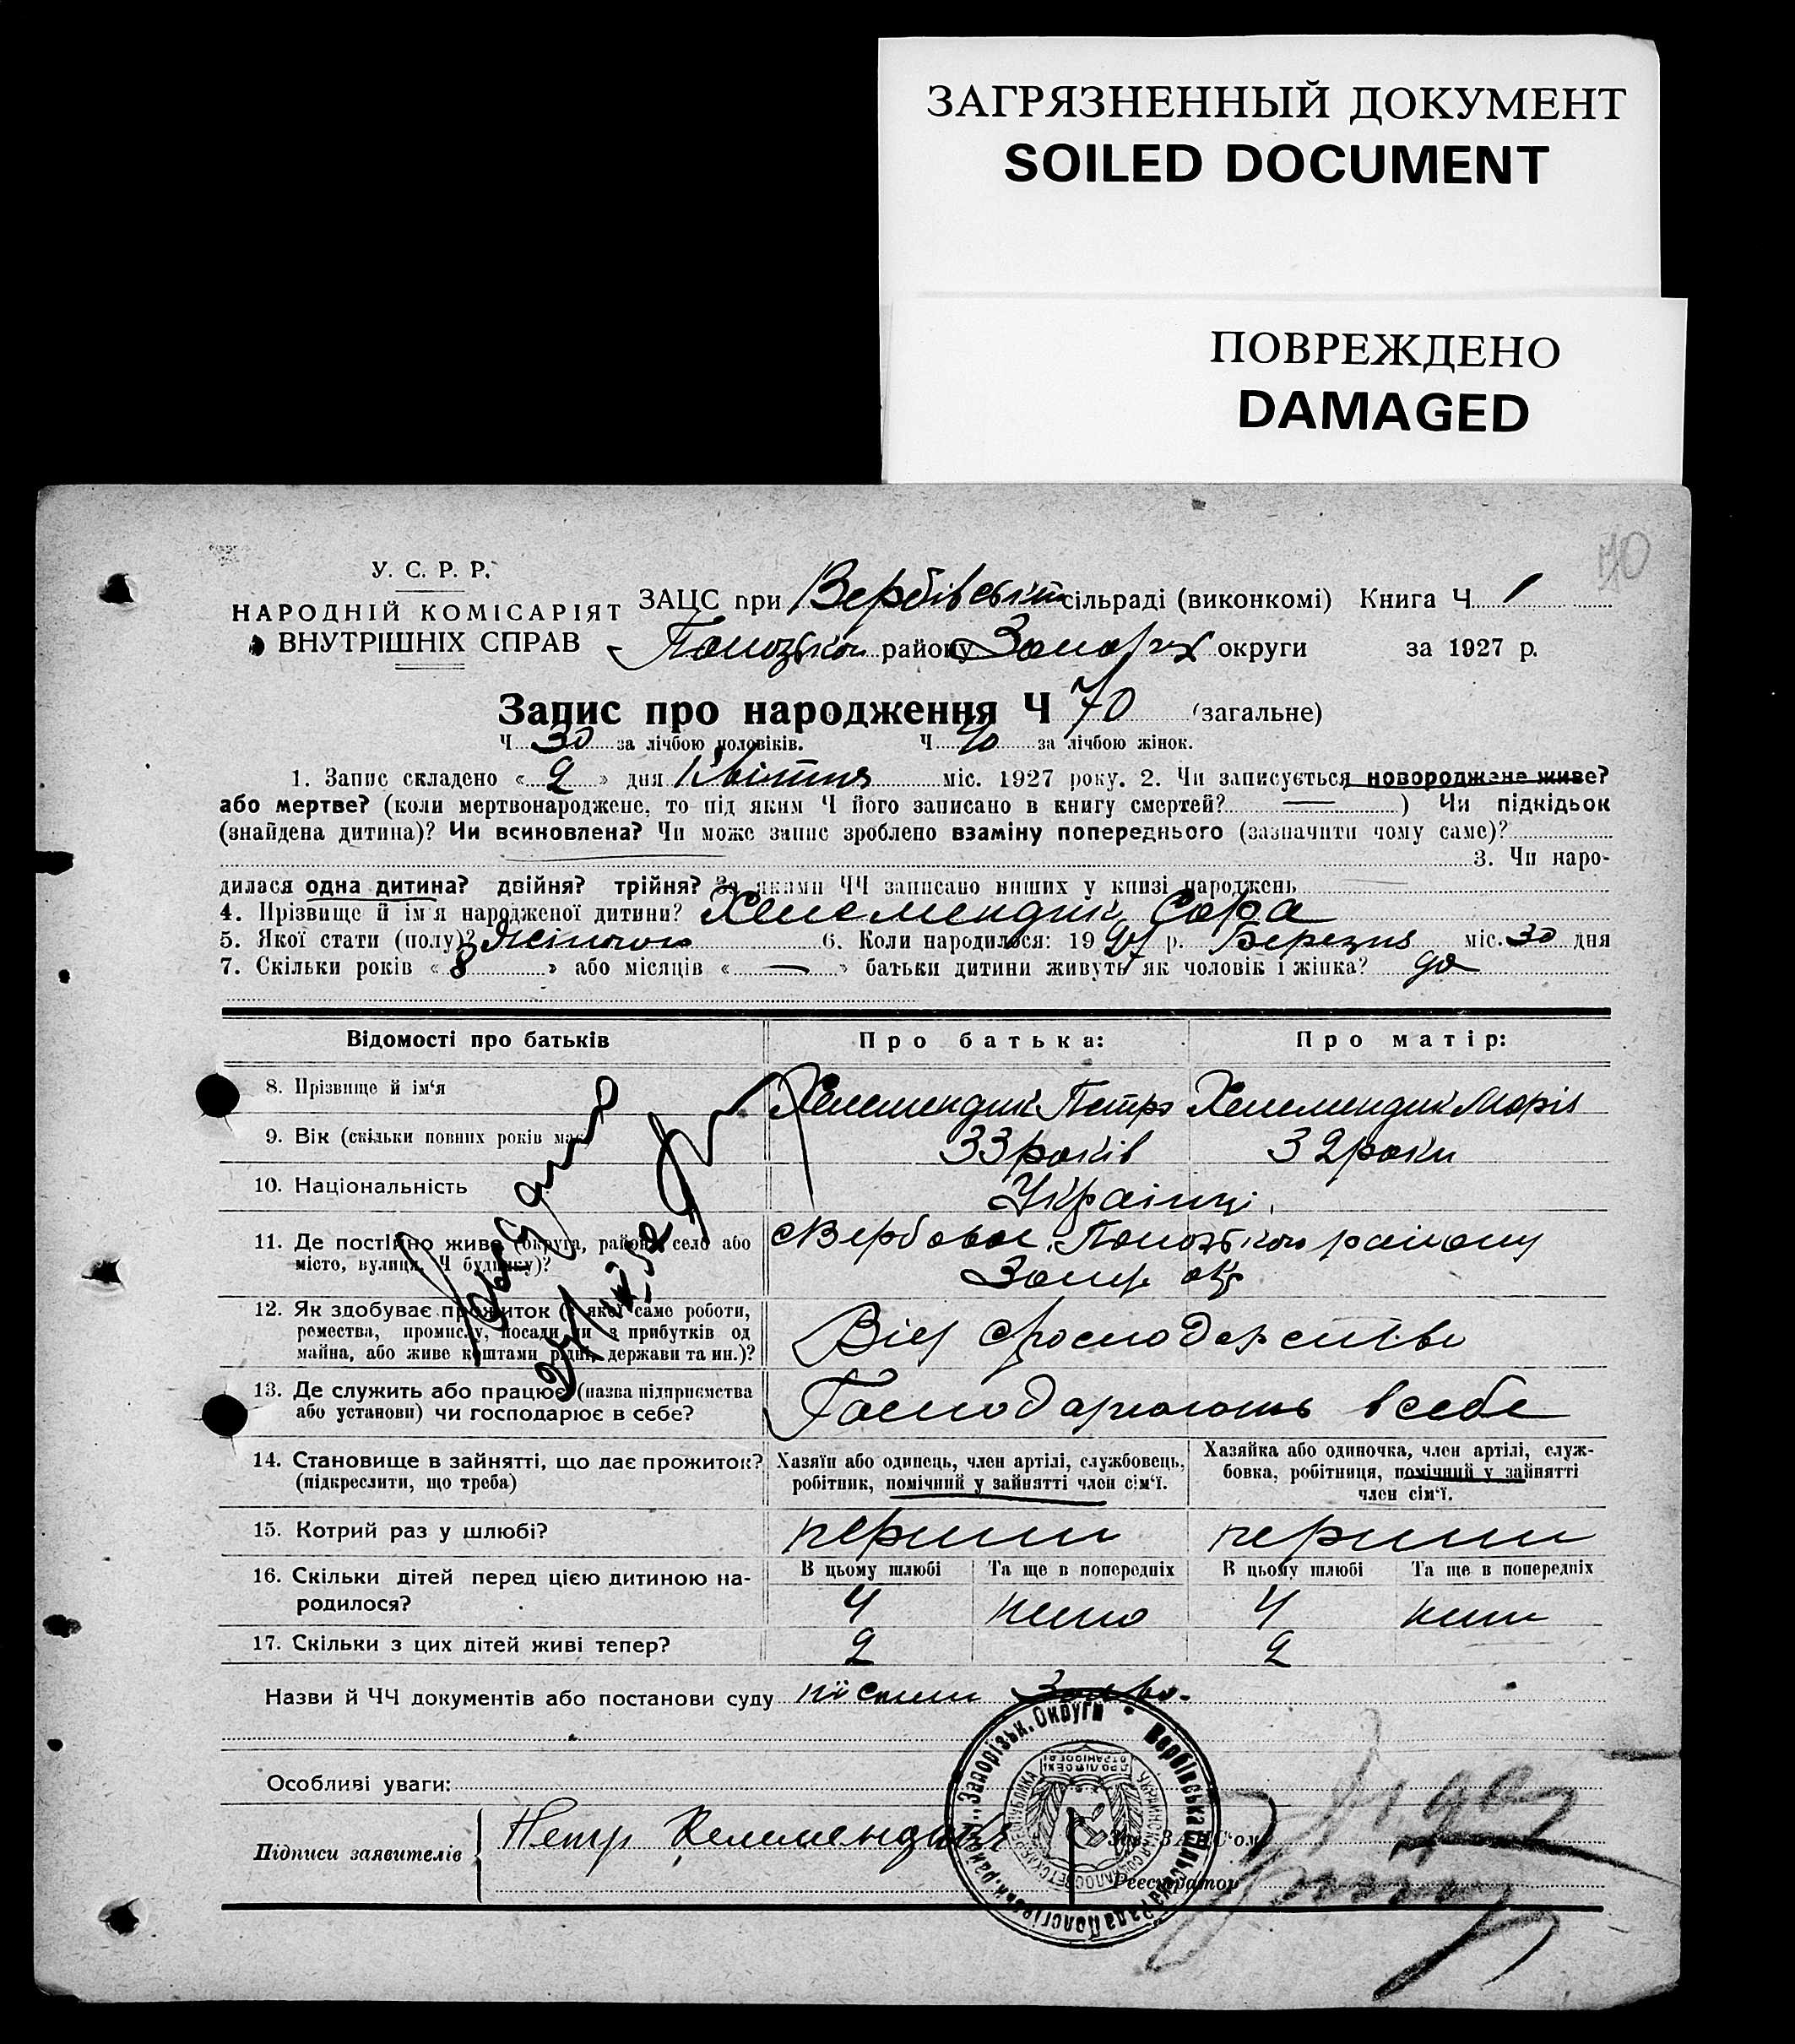 ЗАГРЯЗНЕННЫЙ ДОКУМЕНТ
SOILED DOCUMENT
ПОВРЕЖДЕНО
DAMAGED
70
У. С. Р. Р.
НАРОДНІЙ КОМІСАРІЯТ
ВНУТРІШНІХ СПРАВ
ЗАЦС при Вербівській сільраді (виконкомі) Книга Ч. 1
району округи за 1927 р.
Запис про народження Ч 70 (загальне)
Ч 30 за лічбою чоловіків. Ч 40 за лічбою жінок.
1. Запис складено « 2 » дня Квітня міс. 1927 року. 2. Чи записується новороджене живе?
або мертве? (коли мертвонароджене, то під яким Ч його записано в книгу смертей? — ) Чи підкідьок
(знайдена дитина)? Чи всиновлена? Чи може запис зроблено взаміну попереднього (зазначити чому саме)?
3. Чи наро-
дилася одна дитина? двійня? трійня? За якими ЧЧ записано инших у книзі народжень
4. Прізвище й ім'я народженої дитини? Хелемендик Сора
5. Якої стати (полу)? Жіночої 6. Коли народилося: 1927 р. Березня міс. 30 дня
7. Скільки років « 8 » або місяців « — » батьки дитини живуть як чоловік і жінка? да
Відомості про батьків Про батька: Про матір:
8. Прізвище й ім'я Хелемендик Петро Хелемендик Марія
9. Вік (скільки повних років має) 33 років 32 роки
10. Національність Українці
11. Де постійно живе (округа, район, село або
місто, вулиця, Ч будинку)?
с Вербове, району
Запор окр
12. Як здобуває прожиток (з якої саме роботи,
ремества, промислу, посади чи з прибутків од
майна, або живе коштами рідні, держави та ин.)?
Від господарства
13. Де служить або працює (назва підприємства
або установи) чи господарює в себе?
Господарюють в себе
14. Становище в зайнятті, що дає прожиток?
(підкреслити, що треба)
Хазяїн або одинець, член артілі, службовець,
робітник, помічний у зайнятті член сім'ї.
Хазяйка або одиночка, член артілі, служ-
бовка, робітниця, помічний у зайнятті
член сім'ї.
15. Котрий раз у шлюбі? перший перший
16. Скільки дітей перед цією дитиною на-
родилося?
В цьому шлюбі Та ще в попередніх В цьому шлюбі Та ще в попередніх
4 4
17. Скільки з цих дітей живі тепер? 2 2
Назви й ЧЧ документів або постанови суду
Особливі уваги:
Підписи заявителів Петр Хелемендик
Зав. ЗАЦС'ом
Реєстратор
Запорізьк. Округи
Вербівська Сільська Рада